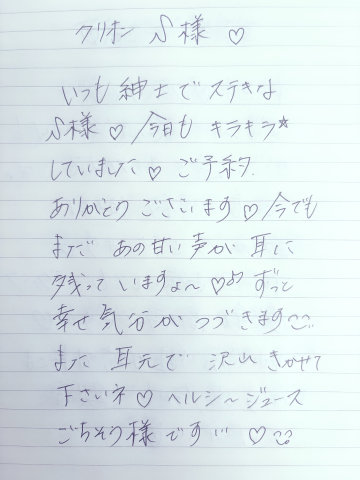 クリホン S様 ♡
いつも 紳士で ステキな
S様 ♡ 今日も キラキラ☆
していました ♡ ご予約
ありがとう ございます ♡ 今でも
まだ あの甘い 声が 耳に
残って いますよ〜 ♡♪ ずっと
幸せ 気分が つづきます
また 耳元で 沢山 きかせて
下さいネ ♡ ヘルシ〜 ジュース
ごちそう様 です!! ♡